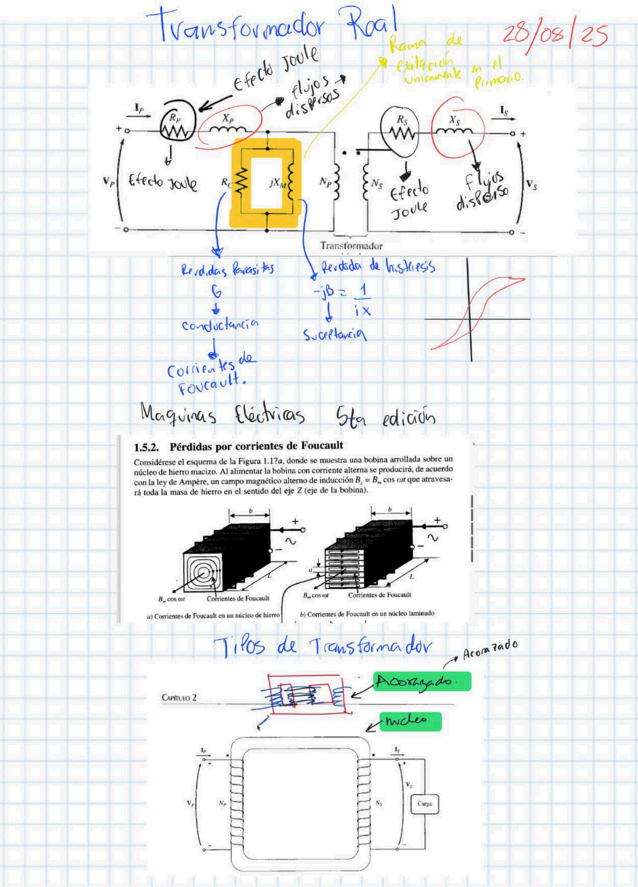 Transformador Real
28/08/25
Rama de
exitación
unicamente en el
Primario.
Efecto Joule
flujos
dispersos
I_P
R_P
X_P
R_S
X_S
I_S
+
+
V_P
Efecto Joule
R_C
jX_M
N_P
N_S
Efecto
Joule
flujos
disperso
V_S
Transformador
Perdidas Parasitas
G
conductancia
Corrientes de
Foucault.
Perdida de histhesis
-jB = 1/ix
Suceptancia
Maquinas Eléctricas 5ta edición
1.5.2. Pérdidas por corrientes de Foucault
Considérese el esquema de la Figura 1.17a, donde se muestra una bobina arrollada sobre un
núcleo de hierro macizo. Al alimentar la bobina con corriente alterna se producirá, de acuerdo
con la ley de Ampère, un campo magnético alterno de inducción B_z = B_m cos ωt que atravesa-
rá toda la masa de hierro en el sentido del eje Z (eje de la bobina).
b
+
-
L
B_m cos ωt
Corrientes de Foucault
a) Corrientes de Foucault en un núcleo de hierro
b
+
-
a
L
B_m cos ωt
Corrientes de Foucault
b) Corrientes de Foucault en un núcleo laminado
Tipos de Transformador
Acorazado
Acorazado.
CAPÍTULO 2
nucleo
I_P
I_S
+
+
V_P
N_P
N_S
V_S
Carga